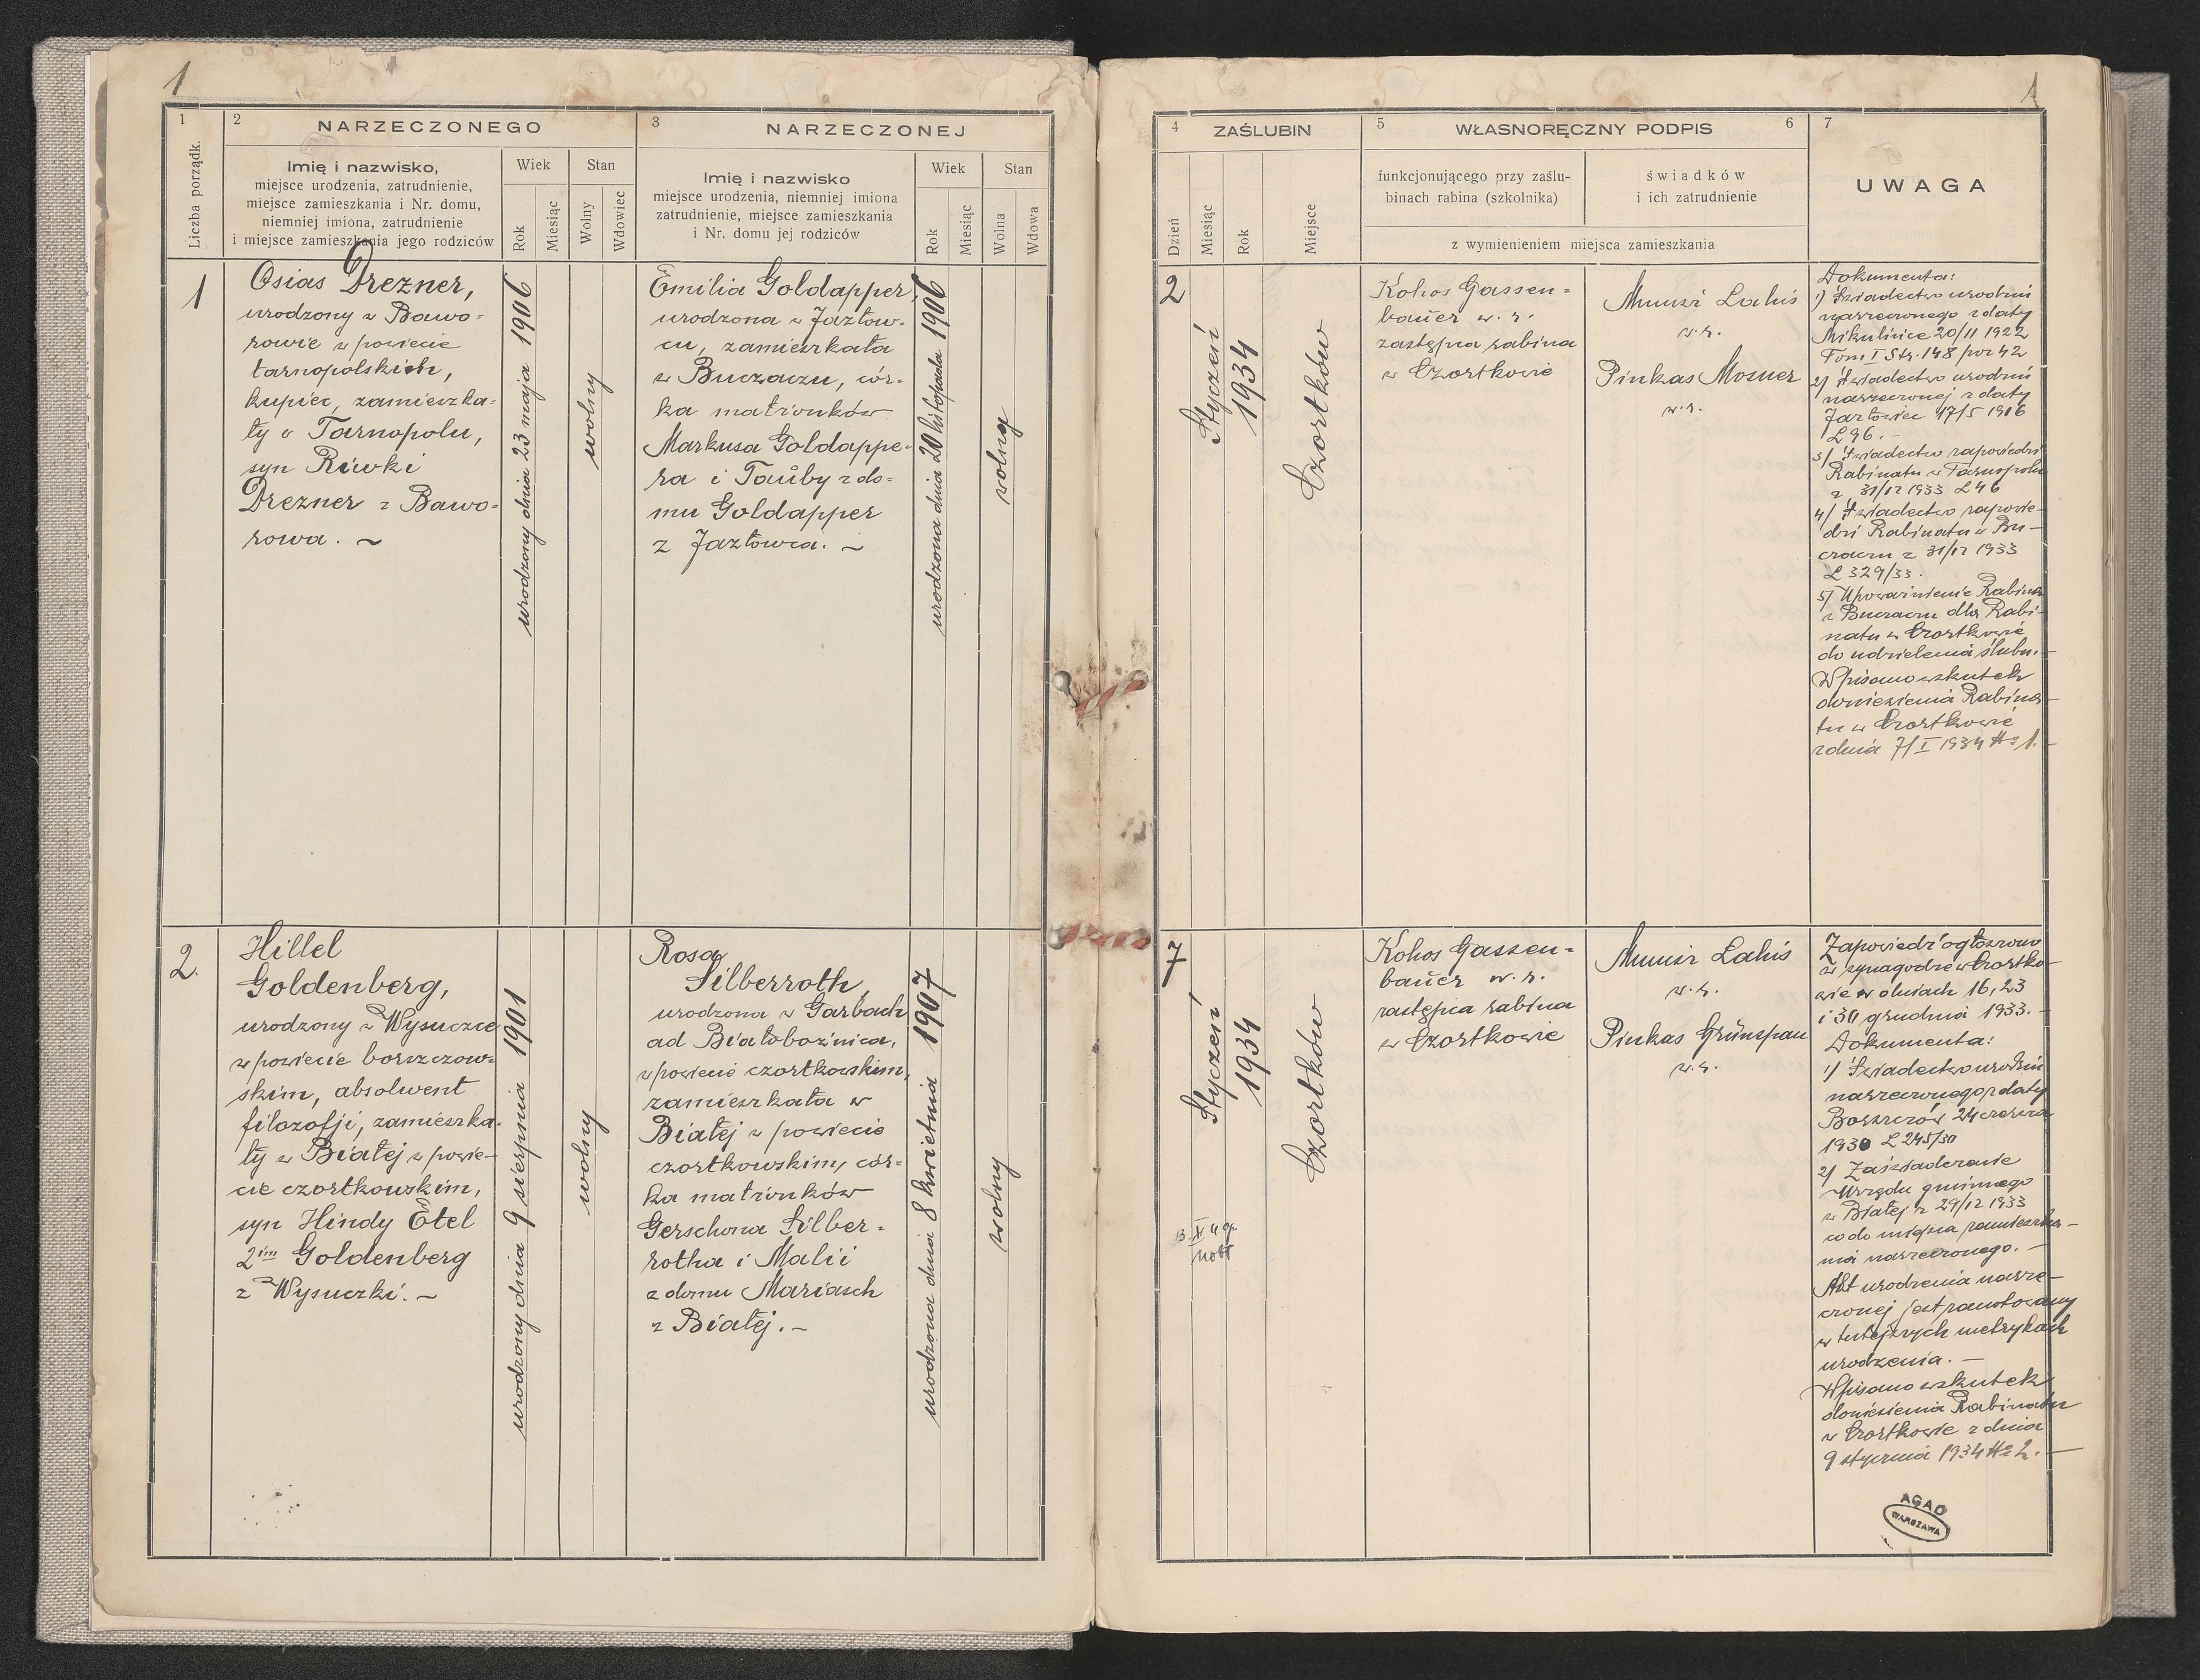 1
1
1
2
NARZECZONEGO
3
NARZECZONEJ
Liczba porządk.
Imię i nazwisko,
miejsce urodzenia, zatrudnienie,
miejsce zamieszkania i Nr. domu,
niemniej imiona, zatrudnienie
i miejsce zamieszkania jego rodziców
Wiek
Rok
Miesiąc
Stan
Wolny
Wdowiec
Imię i nazwisko
miejsce urodzenia, niemniej imiona
zatrudnienie, miejsce zamieszkania
i Nr. domu jej rodziców
Wiek
Rok
Miesiąc
Stan
Wolna
Wdowa
4
ZAŚLUBIN
5
WŁASNORĘCZNY PODPIS
6
7
Dzień
Miesiąc
Rok
Miejsce
funkcjonującego przy zaślu-
binach rabina (szkolnika)
świadków
i ich zatrudnienie
z wymienieniem miejsca zamieszkania
UWAGA
1
Osias Drezner,
urodzony w Bawo-
rowie w powiecie
tarnopolskim,
kupiec, zamieszka-
ły w Tarnopolu,
syn Riwki
Drezner z Bawo-
rowa. -
urodzony dnia 23 maja 1906
wolny
Emilia Goldapper,
urodzona w Jazłow-
cu, zamieszkała
w Buczaczu, cór-
ka małżonków
Markusa Goldappe-
ra i Tauby z do-
mu Goldapper
z Jazłowca. -
urodzona dnia 20 listopada 1906
wolna
2
Styczeń
1934
Czortków
Kohos Gassen-
bauer w. r.
zastępca rabina
w Czortkowie
Munisi Lahis
w. r.
Pinkas Mosner
w. r.
Dokumenta:
1) Świadectwo urodzin
narzeczonego z daty
Mikulińce 20/11 1922
Tom I Str. 148 poz 42
2) Świadectwo urodzin
narzeczonej z daty
Jazłowiec 17/5 1916
L 96. -
3) Świadectwo zapowiedzi
Rabinatu w Tarnopolu
z 31/12 1933 L 46
4) Świadectwo zapowie-
dzi Rabinatu w Bu-
czaczu z 31/12 1933
L 329/33.
5) Upoważnienie Rabina
z Buczacza dla Rabi-
natu w Czortkowie
do udzielenia ślubu. -
Wpisano wskutek
doniesienia Rabina-
tu w Czortkowie
z dnia 7/I 1934 № 1. -
2.
Hillel
Goldenberg,
urodzony w Wysuczce
w powiecie borszczow-
skim, absolwent
filozofji, zamieszka-
ły w Białej w powie-
cie czortkowskim,
syn Hindy Etel
2im Goldenberg
z Wysuczki. -
urodzony dnia 9 sierpnia 1901
wolny
Rosa
Silberroth
urodzona w Garbach
ad Białobożnica,
w powiecie czortkowskim,
zamieszkała w
Białej w powiecie
czortkowskim, cór-
ka małżonków
Gerschona Silber-
rotha i Malii
z domu Mariasch
z Białej. -
urodzona dnia 8 kwietnia 1907
wolny
7
Styczeń
1934
Czortków
Kohos Gassen-
bauer w. r.
zastępca rabina
w Czortkowie
Munisi Lahis
w. r.
Pinkas Grünspan
w. r.
Zapowiedź ogłoszono
w synagodze w Czortko-
wie w dniach 16, 23
i 30 grudnia 1933. -
Dokumenta:
1) Świadectwo urodzin
narzeczonego z daty
Borszczów 24 czerwca
1930 L 245/30
2) Zaświadczenie
Urzędu gminnego
w Białej z 29/12 1933
co do miejsca zamieszka-
nia narzeczonego. -
Akt urodzenia narze-
czonej jest zanotowany
w tutejszych metrykach
urodzenia. -
Wpisano wskutek
doniesienia Rabinatu
w Czortkowie z dnia
9 stycznia 1934 № 2. -
AGAD
WARSZAWA